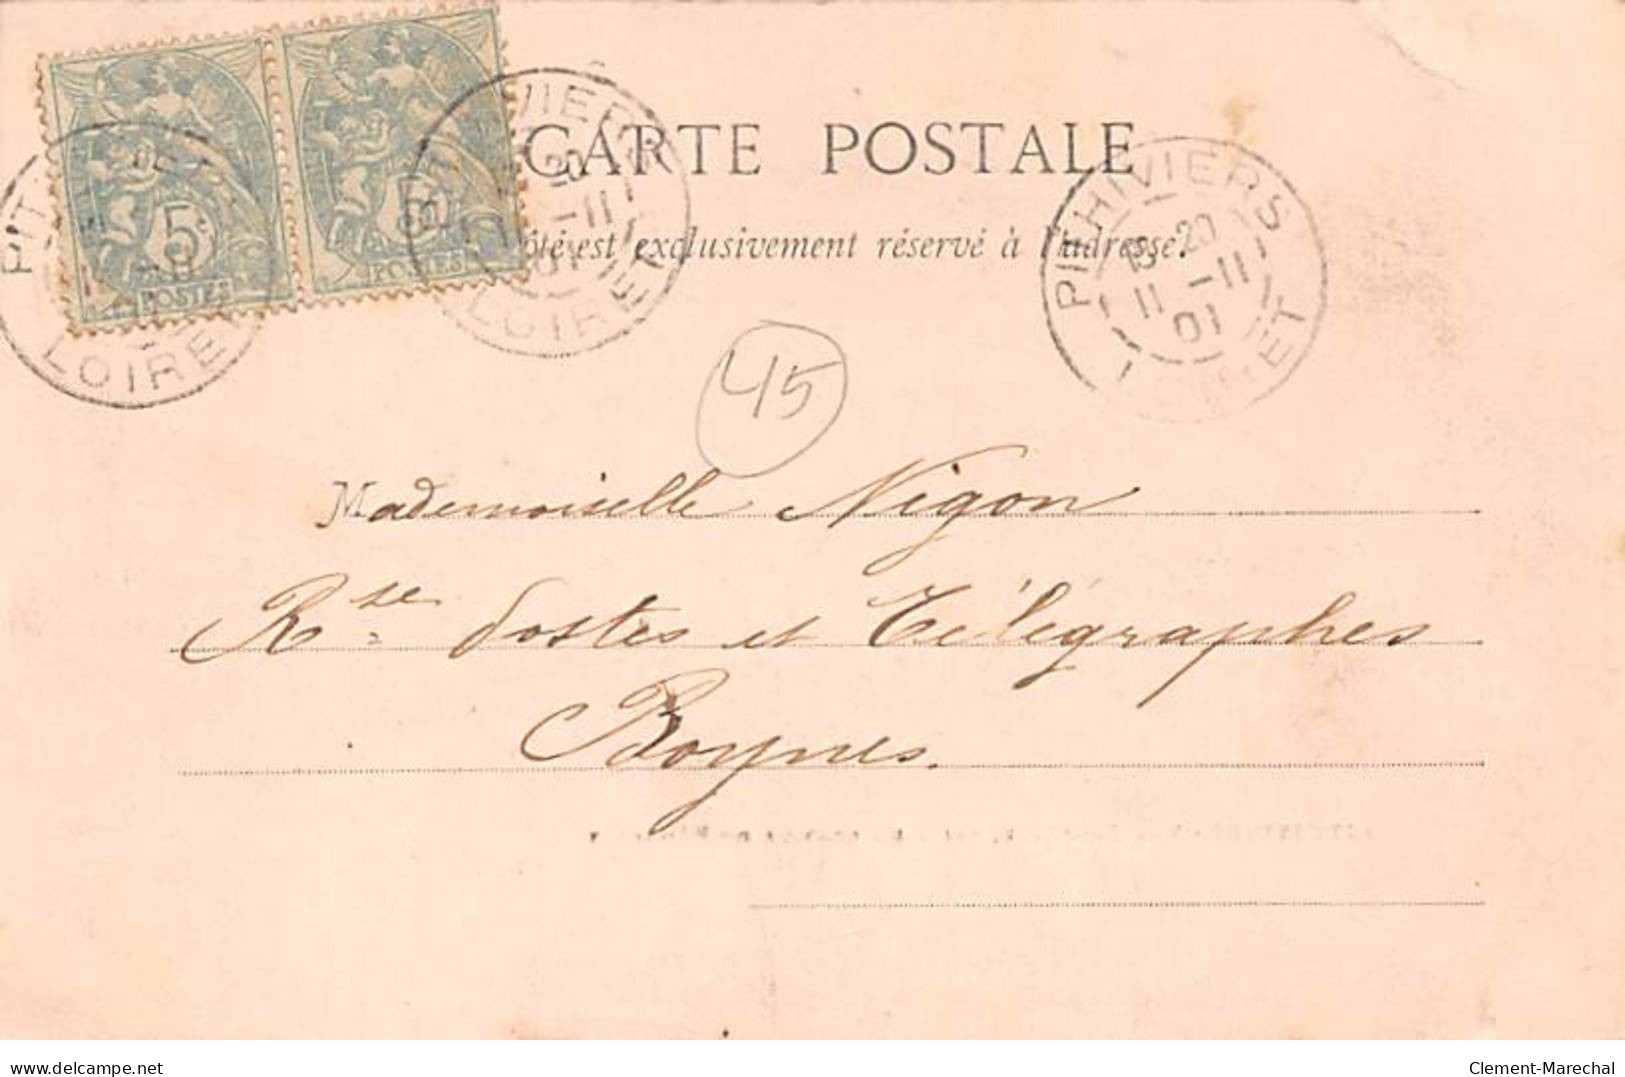 CARTE POSTALE
ôté est exclusivement réservé à l'adresse.
5
5
POSTES
POSTES
LOIRET
LOIRET
PITHIVIERS
20
11 -11
01
LOIRET
45
Mademoiselle Nigon
Rse Postes et Télégraphes
Boynes.
delcampe.net
Clement-Marechal